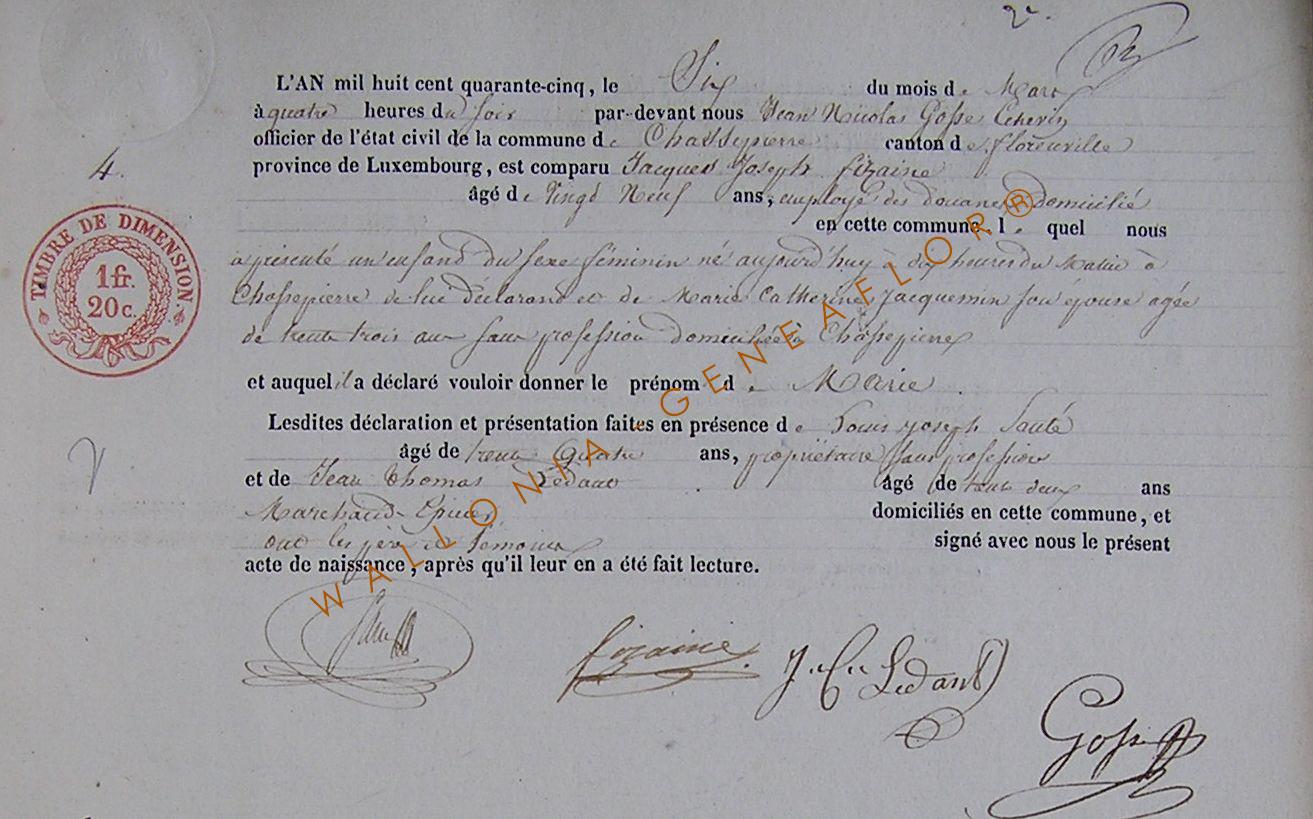 2e.
L'AN mil huit cent quarante-cinq, le Six du mois de Mars
à quatre heures du soir par-devant nous Jean Nicolas Gosse Echevin
officier de l'état civil de la commune de Chassepierre canton de florenville
province de Luxembourg, est comparu Jacques Joseph fizaine
4.
âgé de vingd Neuf ans, employé des douanes domicilié
en cette commune, lequel nous
TIMBRE DE DIMENSION.
1 fr.
20 c.
a présenté un enfand du sexe féminin né aujourd'huy à dix heures du Matin à
Chassepierre de lui déclarand et de Marie Catherine Jacquemin son épouse agée
de trente trois ans sans profession domiciliée à Chassepierre
et auquel il a déclaré vouloir donner le prénom de Marie.
Lesdites déclaration et présentation faites en présence de Louis joseph Sauté
âgé de trente Quatre ans, propriétaire sans profession
et de Jean Thomas Ledant âgé de trente deux ans
Marchand Epicier domiciliés en cette commune, et
ont les père et témoins signé avec nous le présent
acte de naissance, après qu'il leur en a été fait lecture.
fizaine
Ledant
Gosse
WALLONIA - GENEAFLOR ®